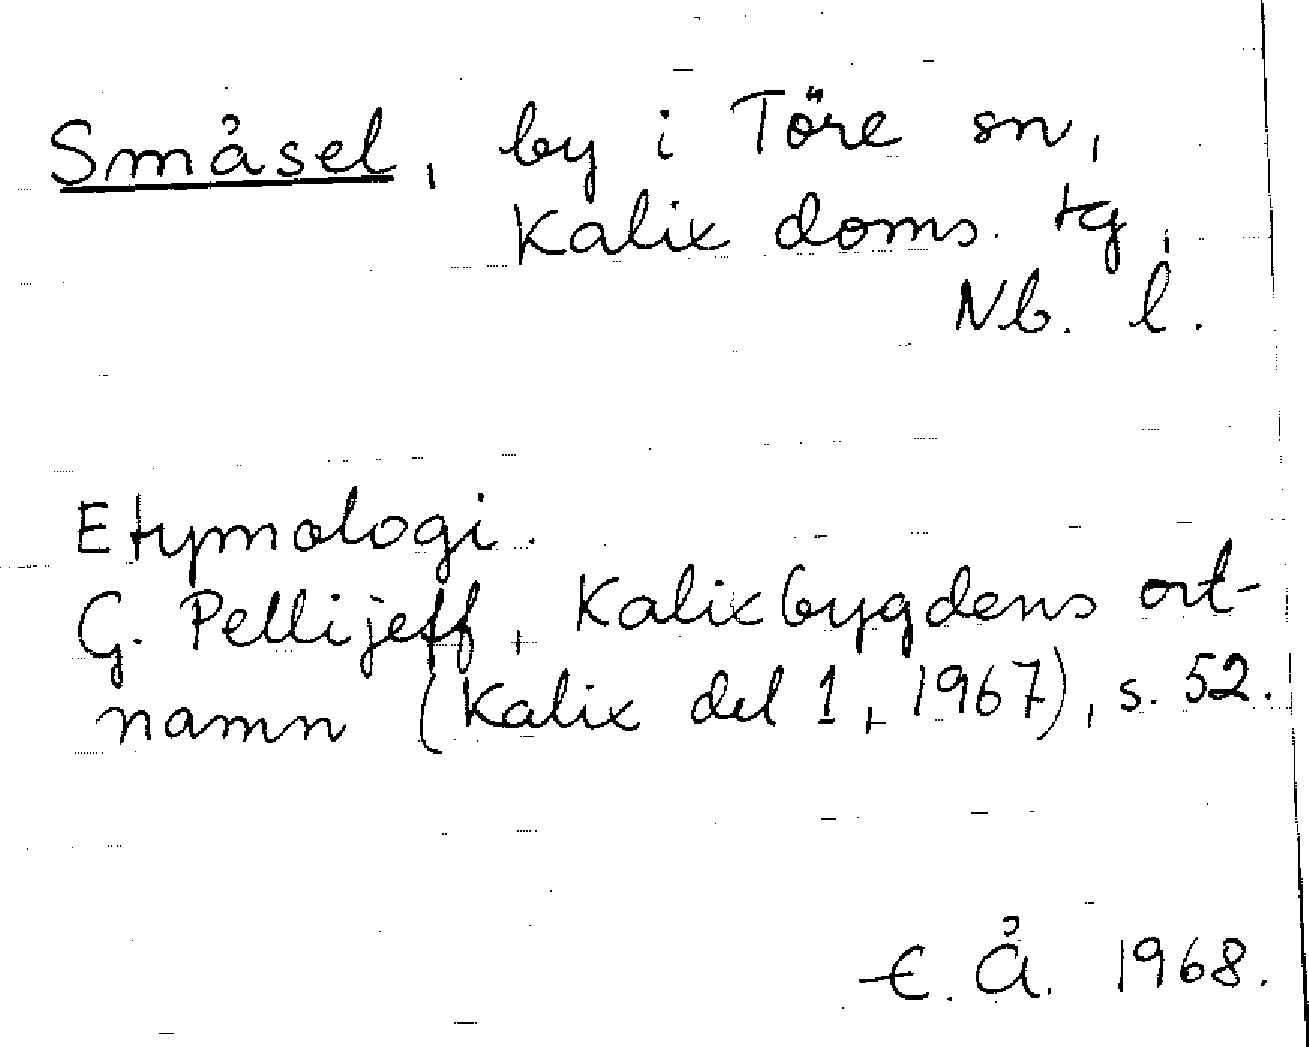 Småsel, by i Töre sn,
Kalix doms. tg,
Nb. l.
Etymologi.
G. Pellijeff, Kalixbygdens ort-
namn (Kalix del 1, 1967), s. 52.
E. Å. 1968.